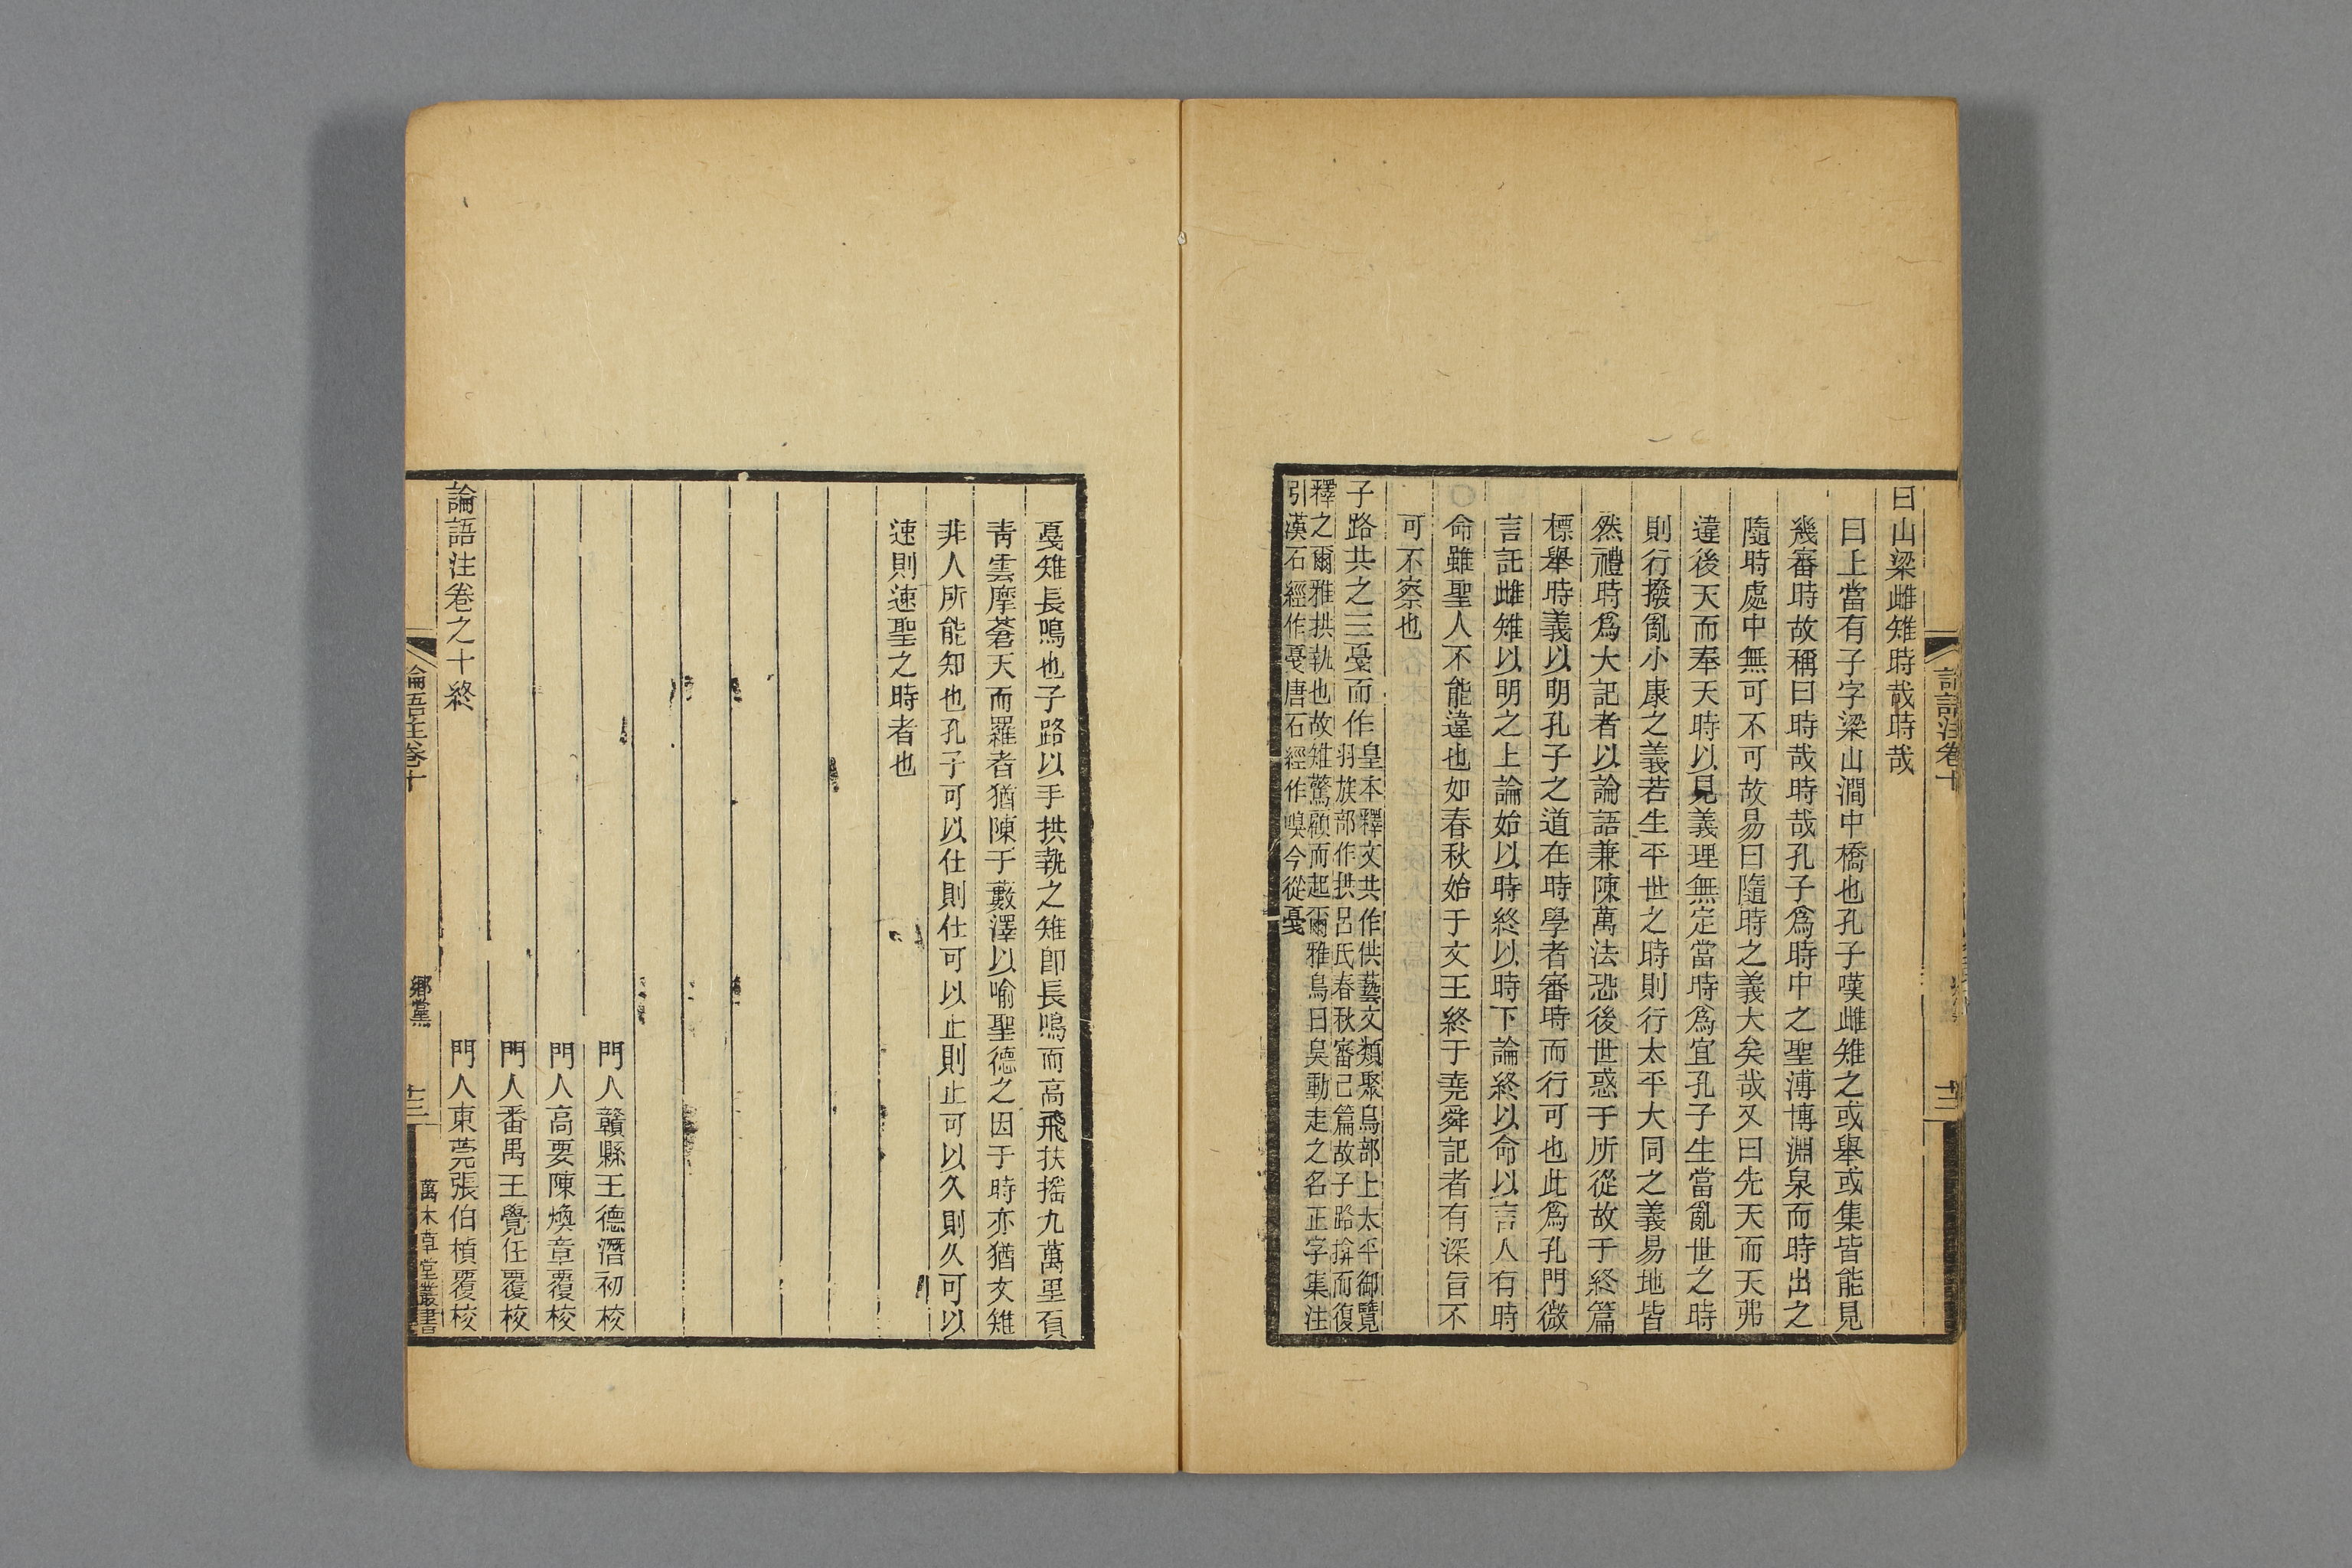 曰山梁雌雉時哉時哉
曰上當有子字梁山澗中橋也孔子嘆雌雉之或舉或集皆能見
幾審時故稱曰時哉時哉孔子爲時中之聖溥博淵泉而時出之
隨時處中無可不可故易曰隨時之義大矣哉又曰先天而天弗
違後天而奉天時以見義理無定當時爲宜孔子生當亂世之時
則行撥亂小康之義若生平世之時則行太平大同之義易地皆
然禮時爲大記者以論語兼陳萬法恐後世惑于所從故于終篇
標舉時義以明孔子之道在時學者審時而行可也此爲孔門微
言託雌雉以明之上論始以時終以時下論終以命以言人有時
命雖聖人不能違也如春秋始于文王終于堯舜記者有深旨不
可不察也
子路共之三戞而作
皇本釋文共作供藝文類聚鳥部上太平御覽
羽族部作拱呂氏春秋審己篇故子路揜而復
釋之爾雅拱執也故雉驚顧而起爾雅鳥曰狊動走之名正字集注
引漢石經作戞唐石經作嗅今從戞
戞雉長鳴也子路以手拱執之雉卽長鳴而高飛扶搖九萬里負
靑雲摩蒼天而羅者猶陳于藪澤以喻聖德之因于時亦猶文雉
非人所能知也孔子可以仕則仕可以止則止可以久則久可以
速則速聖之時者也
門人贛縣王德潛初校
門人高要陳煥章覆校
門人番禺王覺任覆校
論語注卷之十終
門人東莞張伯楨覆校
論語注卷十
鄉黨
十三
萬木草堂叢書